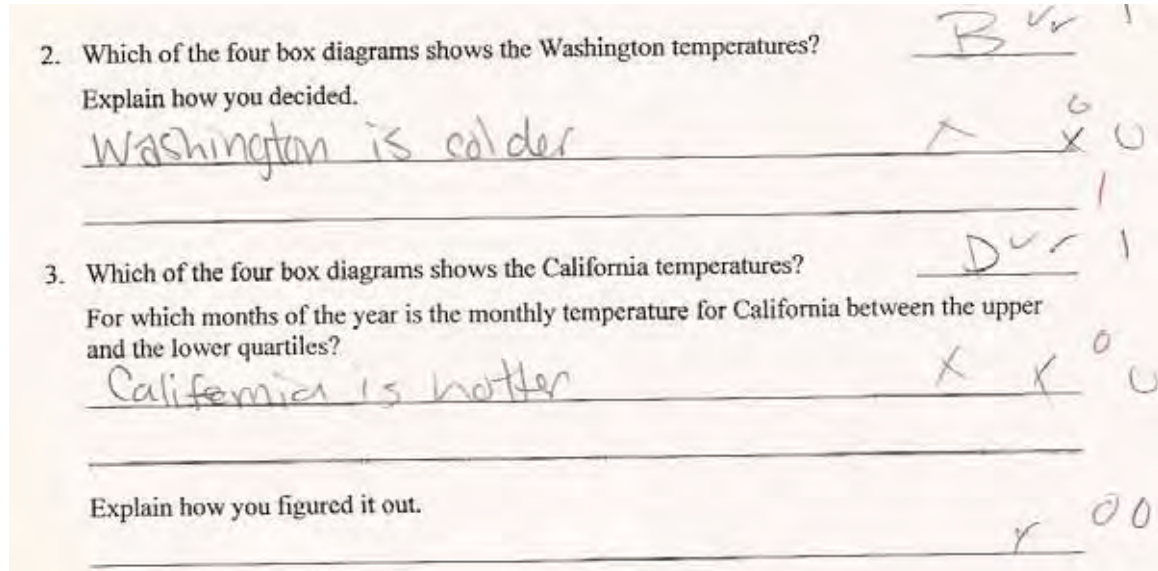 2. Which of the four box diagrams shows the Washington temperatures? B 1
Explain how you decided.
Washington is colder x 0
1
3. Which of the four box diagrams shows the California temperatures? D 1
For which months of the year is the monthly temperature for California between the upper
and the lower quartiles?
California is hotter x x 0
Explain how you figured it out.
00